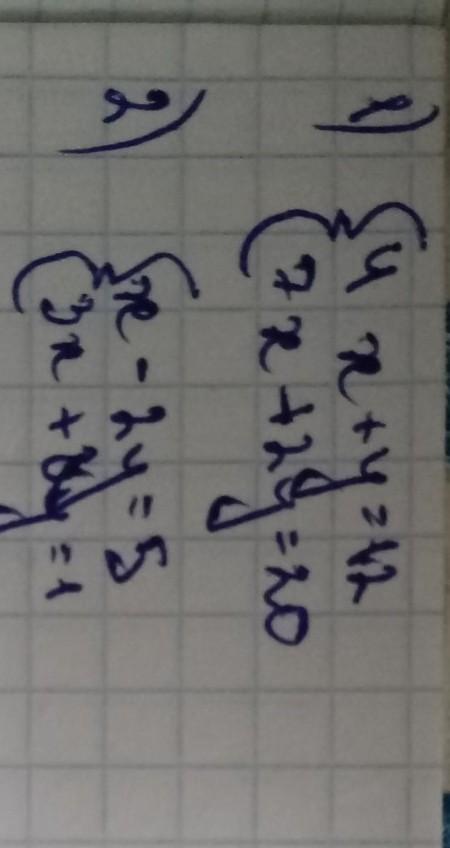 1) { 4x+y=12
7x+2y=20
2) { x-2y=5
3x+8y=1